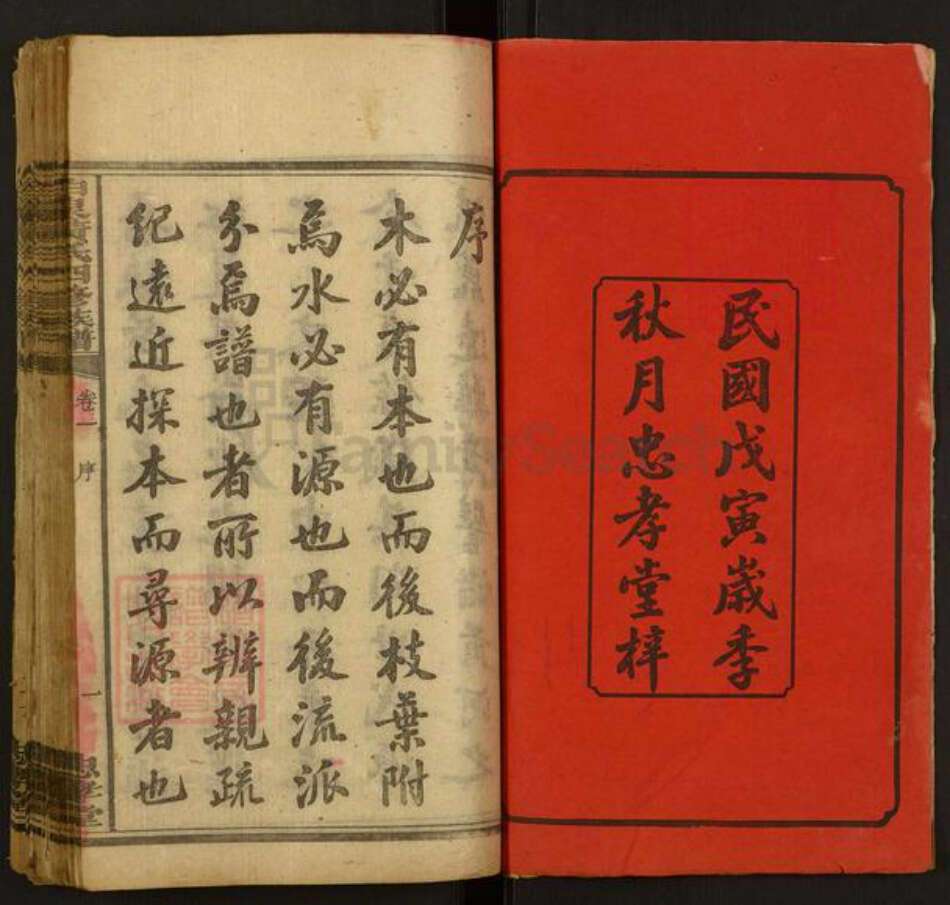 民國戊寅歲季
秋月忠孝堂梓
序
木必有本也而後枝葉附
焉水必有源也而後流派
分焉譜也者所以辨親疏
紀遠近探本而尋源者也
氏四修族譜
卷一
序
一
忠孝堂
FamilySearch